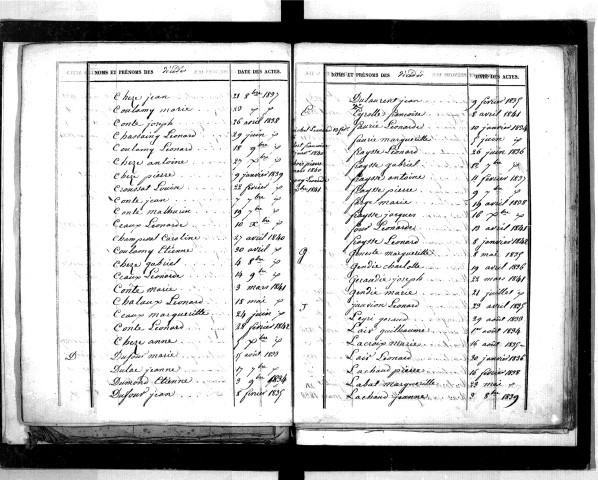 NOMS ET PRÉNOMS DES Décédés DATE DES ACTES.
Cheze jean 21 8bre 1837
Coulamy marie
Conte joseph 26 avril 1838
Chastaing Léonard 29 juin
Coulamy Léonard 18 9bre
Cheze antoine 27 Xbre
Cheze pierre 9 janvier 1839
22 février
Conte jean 7 7bre
Conte mathurin 19 7bre
Ceaux Léonarde 10 Xbre
Champeval Caroline 27 avril 1840
Coulamy Etienne 30 avril
Cheze gabriel 4 8bre
Ceaux Léonarde 14 9bre
Conte marie 3 mars 1841
Chataux Léonard 18 mai
Ceaux marguerite 24 juin
Conte Léonard 28 février 1842
Cheze anne 5 Xbre
D Dufour marie 15 août 1833
Dulac jeanne 17 7bre
Dumond Etienne 3 9bre 1834
Dufour jean 8 février 1835
NOMS ET PRÉNOMS DES Décédés DATE DES ACTES.
Dulaurent jean 9 février 1835
E Eyrolle françoise 8 avril 1841
faurie Léonarde 10 janvier 1834
faurie marguerite 2 juin
fraysse Léonard 26 juin 1836
fraysse gabriel 12 7bre
fraysse antoine 11 février 1837
fraysse pierre 9 7bre
marie 14 avril 1838
fraysse jacques 16 Xbre
Léonarde 13 avril 1841
fraysse Léonard 8 janvier 1842
G Geneste marguerite 8 mai 1835
Gendre charlotte 19 avril 1836
joseph 22 mars 1841
Gendre marie 21 juillet
J janvion Léonard 29 avril 1835
Leyri géraud 29 août 1833
Lair guilhaume 1er août 1834
Lacroix marie 16 août 1835
Lair Léonard 30 janvier 1836
Lachaud pierre 16 février 1838
Labat marguerite 23 mai
Lachaud jeanne 3 8bre 1839